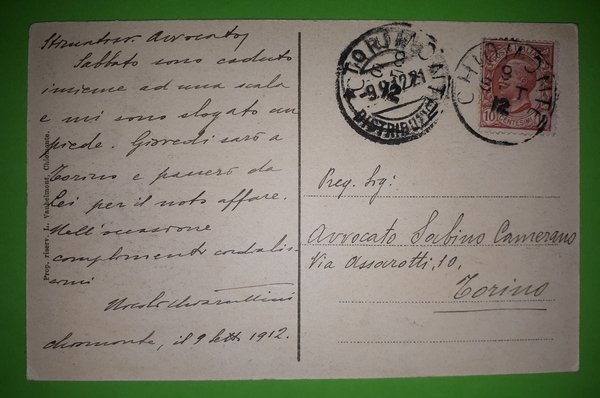 Stimatiss. Avvocato,
Sabbato sono caduto
insieme ad una scala
e mi sono slogato un
piede. Giovedì sarò a
Torino e passerò da
lei per il noto affare.
Nell'occasione
complimenti cordialis-
simi
Chiomonte, il 9 Sett 1912.
Prop. riserv. L. Chiomonte.
TORINO
9.9.12
DISTRIBUZ
CHIOMONTE
9
12
10 CENTESIMI 10
Preg. Sig:
Avvocato Sabino Camerano
Via Assarotti, 10,
Torino